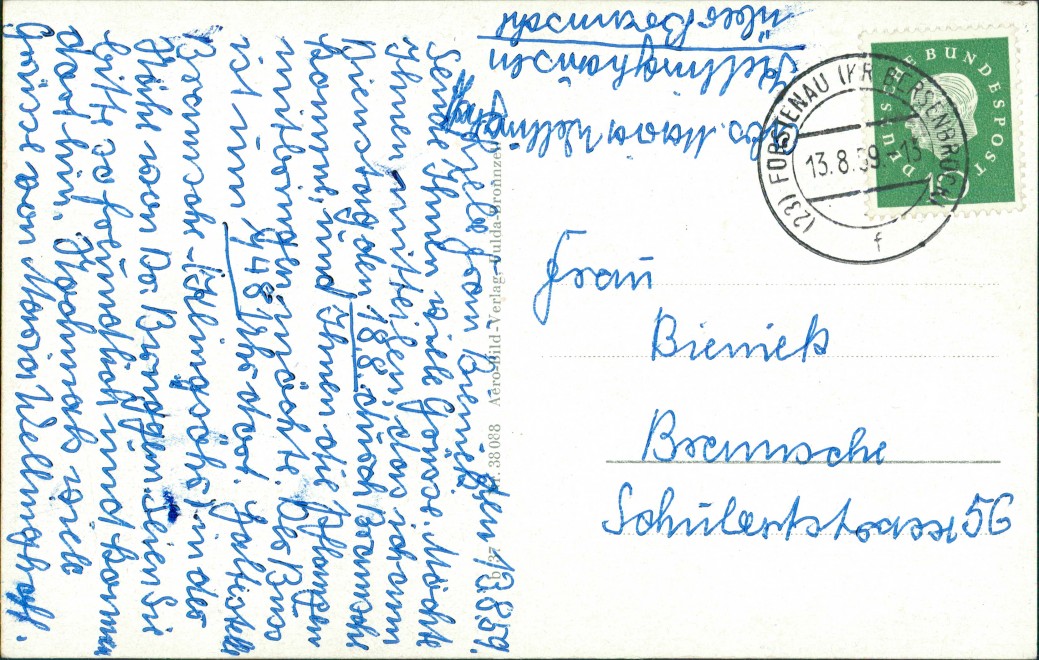 Den 13.8.59.
Liebe Frau Bieniek,
Sende Ihnen viele Grüsse. Möchte
Ihnen mitteilen, das ich am
Dienstag den 18.8. durch Bramsche
komme, und Ihnen die Pflanzen
mitbringen möchte. Der Bus
ist um 448 Uhr dor. Haltestelle
Bramsche
Nähe von Dr. Seien Sie
bitte so freundlich und kommen
dort hin. Nochmals viele
Grüsse von Maria Wellinghoff.
Abs. Maria
Hellinghausen
über Bramsche
Frau
Bieniek
Bramsche
Schülerstrasse 56
DEUTSCHE BUNDESPOST
10
(23) FÜRSTENAU (KR BERSENBRÜCK)
13.8.59.-13
f
Nr. 38088 Aero-Bild-Verlag, Fulda-Bronnzell